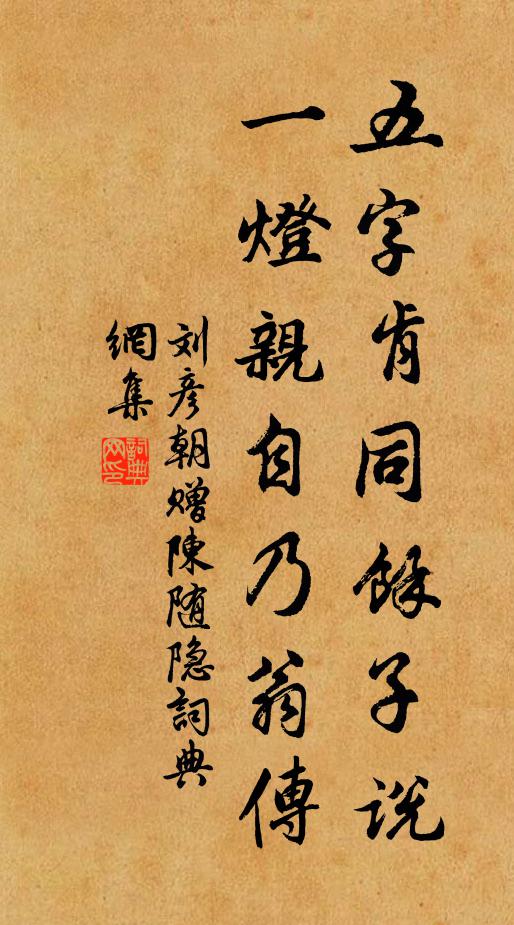 五字肯同餘子説
一燈親自乃翁傳
刘彦朝赠陳随隐詞典
網集
詞典网印